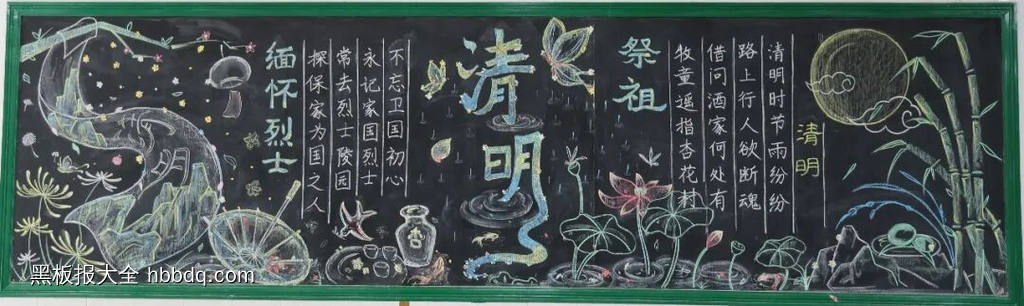 清明
清明
清明时节雨纷纷
路上行人欲断魂
借问酒家何处有
牧童遥指杏花村
祭祖
不忘卫国初心
永记家国烈士
常去烈士陵园
探保家为国之人
缅怀烈士
黑板报大全 hbbdq.com